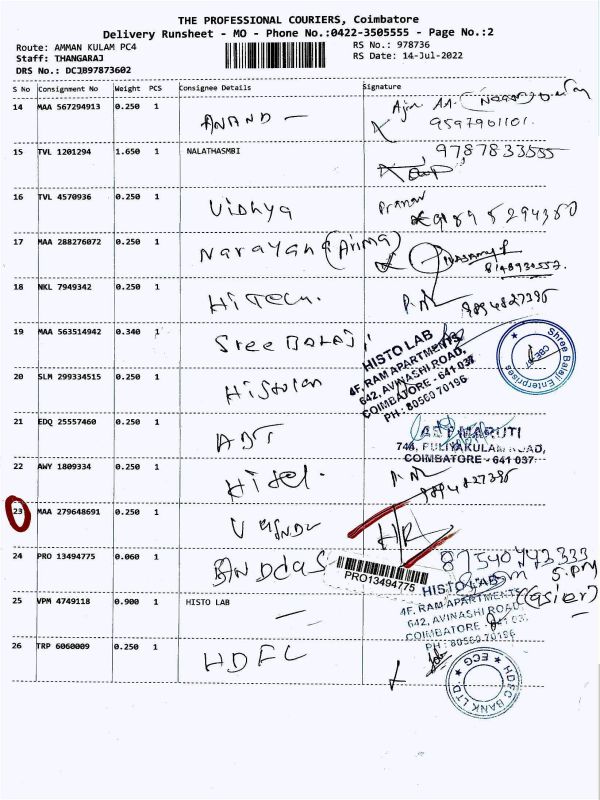 THE PROFESSIONAL COURIERS, Coimbatore
Delivery Runsheet - MO - Phone No.:0422-3505555 - Page No.:2
Route: AMMAN KULAM PC4
RS No.: 978736
Staff: THANGARAJ
RS Date: 14-Jul-2022
DRS No.: DCJB97873602
S No Consignment No Weight PCS Consignee Details Signature
14 MAA 567294913 0.250 1 ANAND
9597901101.
15 TVL 1201294 1.650 1 NALATHASMBI 9787833555
16 TVL 4570936 0.250 1 Vidhya
17 MAA 288276072 0.250 1 Narayana
18 NKL 7949342 0.250 1 Hitech. 9894827395
19 MAA 563514942 0.340 1 Sree BALAJi
Shree Balaji Enterprises
CBE-37
HISTO LAB
4F, RAM APARTMENTS
642, AVINASHI ROAD,
COIMBATORE - 641 037
PH : 80560 70196
20 SLM 299334515 0.250 1 Histolan
21 EDQ 25557460 0.250 1 ADT
MARUTI
PULIYAKULAM ROAD,
COIMBATORE - 641 037
22 AWY 1809334 0.250 1 Hitel. 9894827395
23 MAA 279648691 0.250 1
24 PRO 13494775 0.060 1
PRO13494775
87540443333
25 VPM 4749118 0.900 1 HISTO LAB
HISTO LAB
4F, RAM APARTMENTS
642, AVINASHI ROAD
COIMBATORE
PH : 80560 70196
26 TRP 6060009 0.250 1 HDFC
HDFC BANK LTD.
ECG